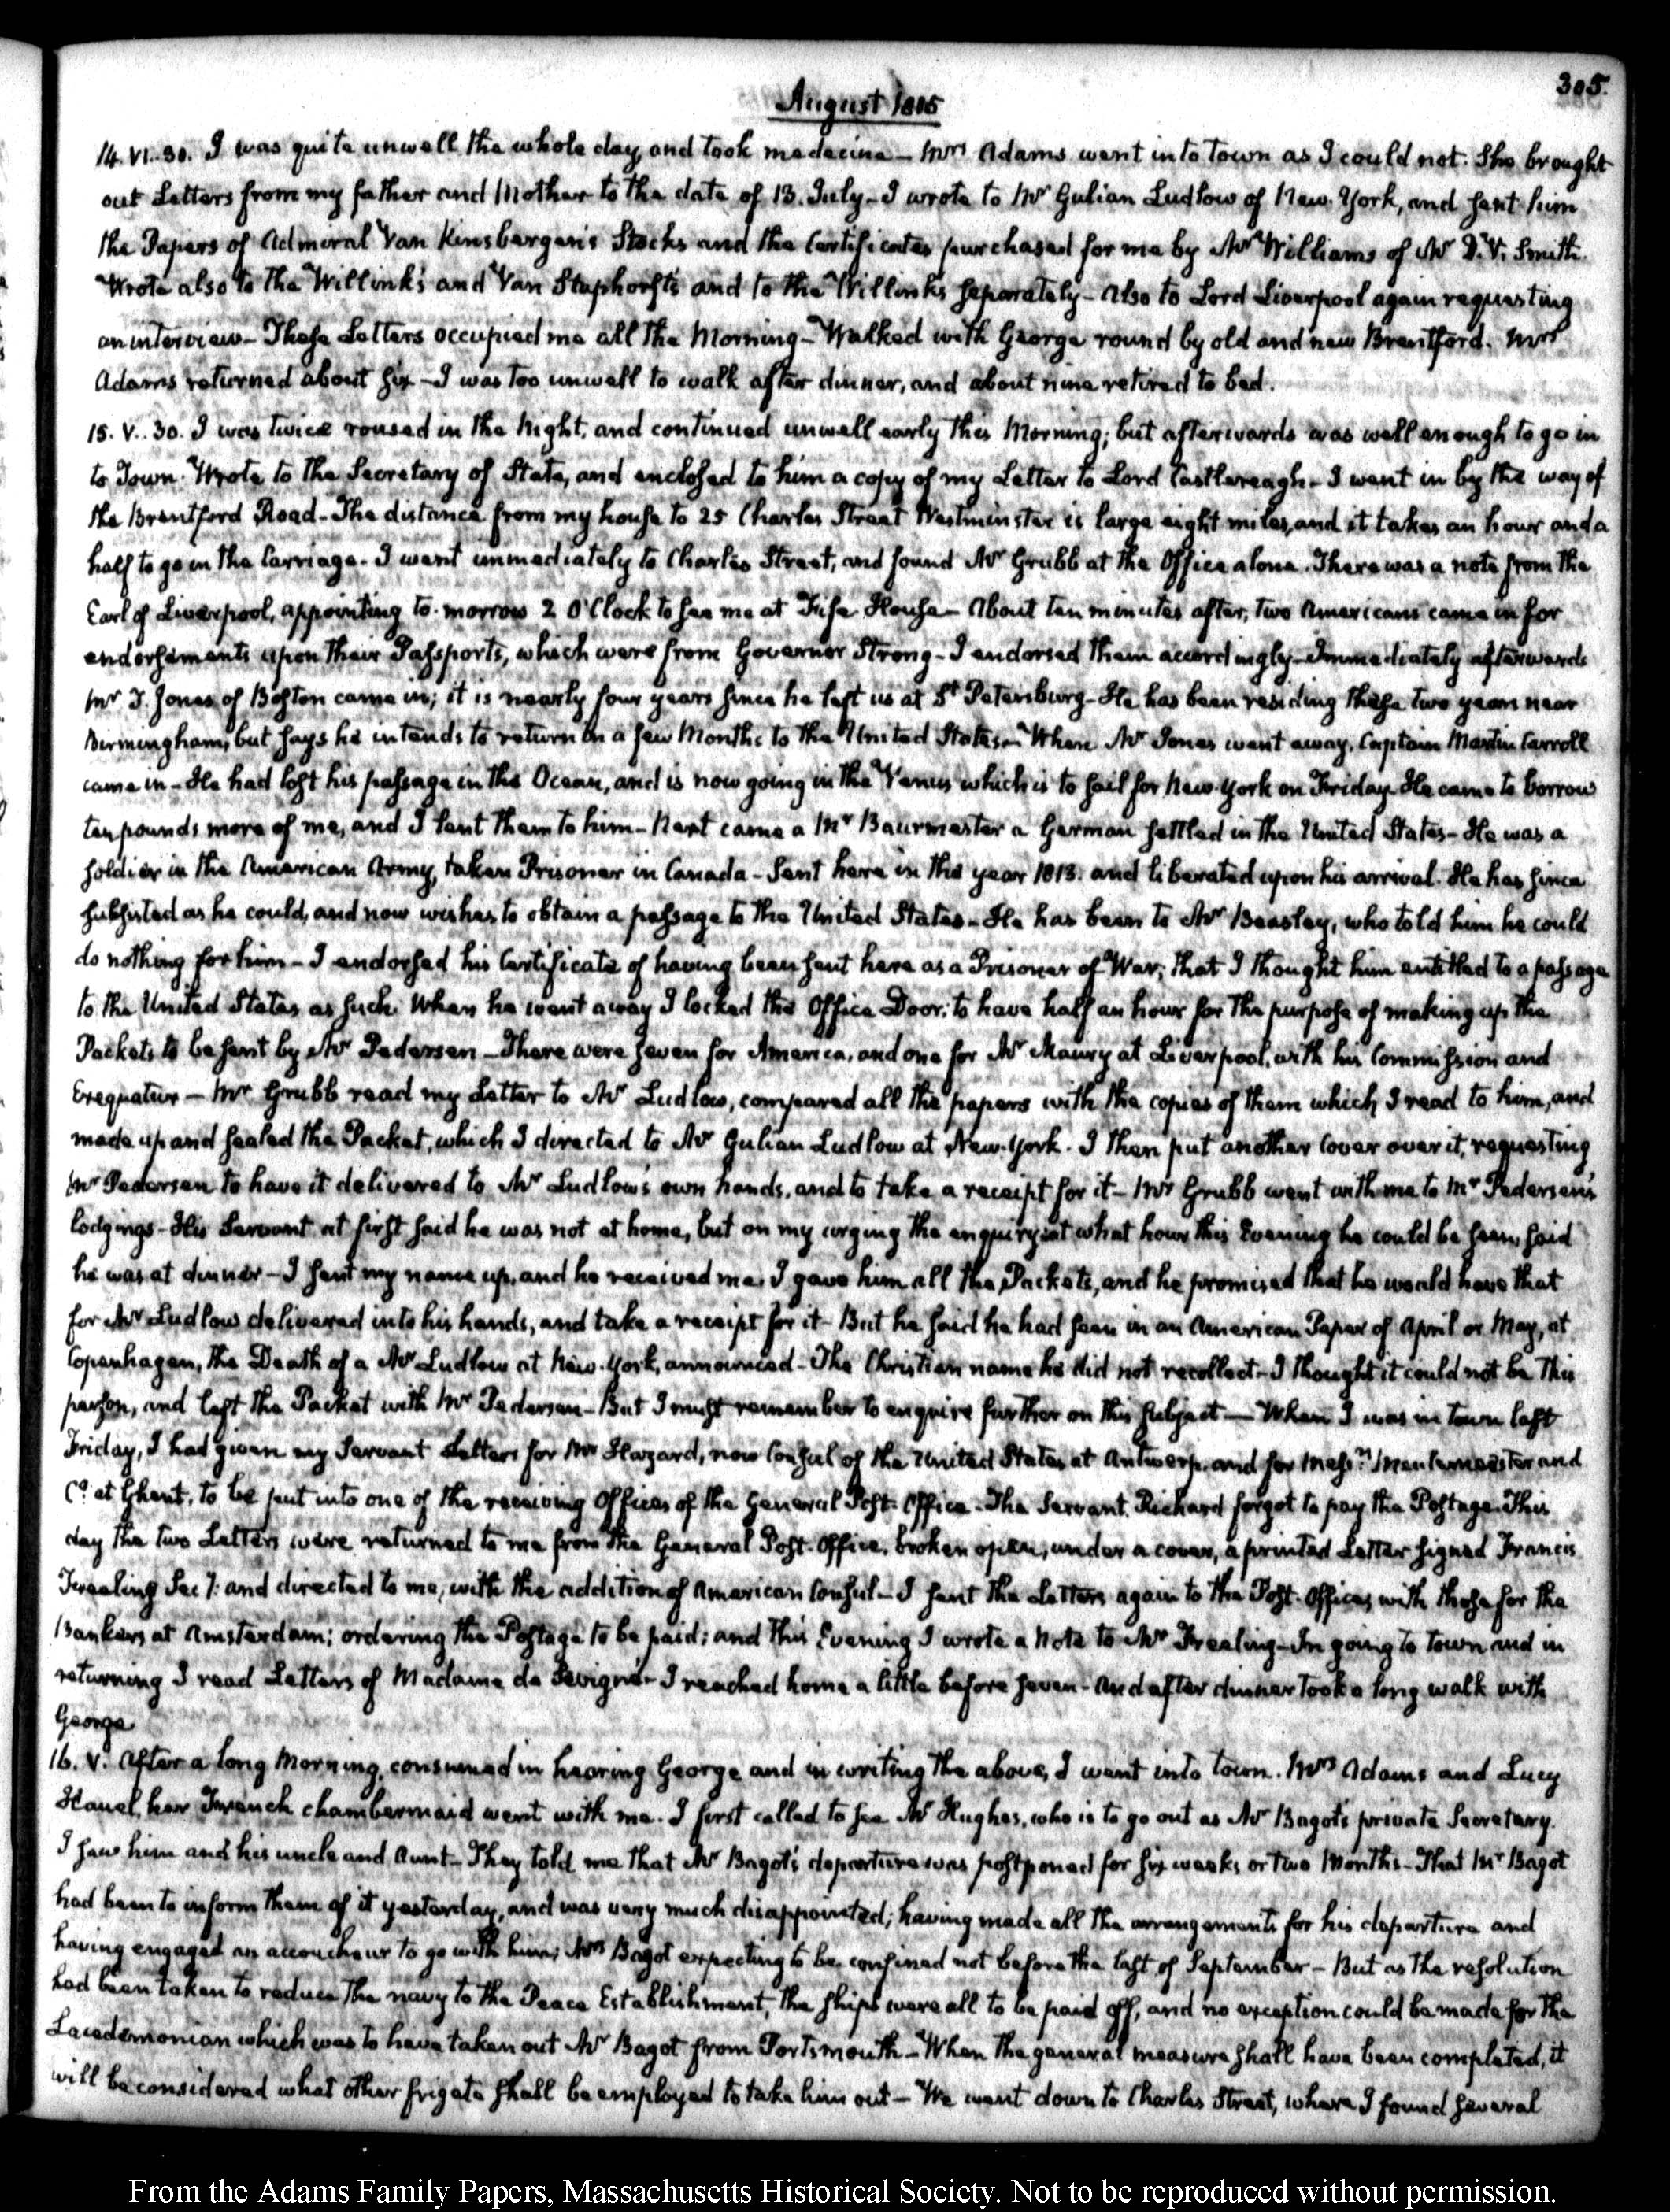 305.
August 1815
14. VI..30. I was quite unwell the whole day, and took medecine — Mrs Adams went into town as I could not. She brought
out Letters from my father and Mother to the date of 13. July — I wrote to Mr Gulian Ludlow of New-York, and sent him
the Papers of Admiral Van Kinsbergen's Stocks and the Certificates purchased for me by Mr Williams of Mr D. V. Smith.
Wrote also to the Willink's and Van Staphorst's and to the Willinks separately — Also to Lord Liverpool again requesting
an interview — These Letters occupied me all the Morning — Walked with George round by old and new Brentford. Mrs
Adams returned about six — I was too unwell to walk after dinner, and about nine retired to bed.
15. V..30. I was twice roused in the Night, and continued unwell early this Morning; but afterwards was well enough to go in
to Town. Wrote to the Secretary of State, and enclosed to him a copy of my Letter to Lord Castlereagh — I went in by the way of
the Brentford Road — The distance from my house to 25 Charles Street Westminster is large eight miles, and it takes an hour and a
half to go in the Carriage. I went immediately to Charles Street, and found Mr Grubb at the Office alone. There was a note from the
Earl of Liverpool, appointing to-morrow 2 O'Clock to see me at Fife House — About ten minutes after, two Americans came in for
endorsements upon their Passports, which were from Governor Strong — I endorsed them accordingly — Immediately afterwards
Mr T. Jones of Boston came in; it is nearly four years since he left us at St Petersburg — He has been residing these two years near
Birmingham, but says he intends to return in a few Months to the United States — When Mr Jones went away, Captain Martin Carroll
came in — He had lost his passage in the Ocean, and is now going in the Venus which is to sail for New-York on Friday. He came to borrow
ten pounds more of me, and I lent them to him — Next came a Mr Baurmaster a German settled in the United States — He was a
soldier in the American Army, taken Prisoner in Canada — Sent here in the year 1813. and liberated upon his arrival. He has since
subsisted as he could, and now wishes to obtain a passage to the United States — He has been to Mr Beasley, who told him he could
do nothing for him — I endorsed his Certificate of having been sent here as a Prisoner of War; that I thought him entitled to a passage
to the United States as such. When he went away I locked the Office Door; to have half an hour for the purpose of making up the
Packets to be sent by Mr Pedersen — There were seven for America, and one for Mr Maury at Liverpool, with his Commission and
Exequatur — Mr Grubb read my Letter to Mr Ludlow, compared all the papers with the copies of them which I read to him, and
made up and sealed the Packet, which I directed to Mr Gulian Ludlow at New-York. I then put another cover over it, requesting
Mr Pedersen to have it delivered to Mr Ludlow's own hands, and to take a receipt for it — Mr Grubb went with me to Mr Pedersen's
lodgings — His Servant at first said he was not at home, but on my urging the enquiry at what hour this Evening he could be seen, said
he was at dinner — I sent my name up, and he received me. I gave him all the Packets, and he promised that he would have that
for Mr Ludlow delivered into his hands, and take a receipt for it — But he said he had seen in an American Paper of April or May, at
Copenhagen, the Death of a Mr Ludlow at New-York, announced — The Christian name he did not recollect — I thought it could not be this
person, and left the Packet with Mr Pedersen — But I must remember to enquire further on this subject — When I was in town last
Friday, I had given my Servant Letters for Mr Hazard, now Consul of the United States at Antwerp, and for Messrs Meulemeester and
Co. at Ghent, to be put into one of the receiving Offices of the General Post-Office — The Servant Richard forgot to pay the Postage. This
day the two Letters were returned to me from the General Post-Office, broken open, under a cover, a printed Letter signed Francis
Freeling Secy: and directed to me, with the addition of American Consul — I sent the Letters again to the Post-Office, with those for the
Bankers at Amsterdam; ordering the Postage to be paid; and this Evening I wrote a Note to Mr Freeling — In going to town and in
returning I read Letters of Madame de Sevigné — I reached home a little before seven — And after dinner took a long walk with
George
16. V. After a long Morning, consumed in hearing George and in writing the above, I went into town. Mrs Adams and Lucy
Houel, her French chambermaid went with me. I first called to see Mr Hughes, who is to go out as Mr Bagot's private Secretary.
I saw him and his uncle and Aunt — They told me that Mr Bagot's departure was postponed for six weeks or two Months — That Mr Bagot
had been to inform them of it yesterday, and was very much disappointed; having made all the arrangements for his departure and
having engaged an accoucheur to go with him; Mrs Bagot expecting to be confined not before the last of September — But as the resolution
had been taken to reduce the navy to the Peace Establishment, the ships were all to be paid off, and no exception could be made for the
Lacedemonian which was to have taken out Mr Bagot from Portsmouth — When the general measure shall have been completed, it
will be considered what other frigate shall be employed to take him out — We went down to Charles Street, where I found several
From the Adams Family Papers, Massachusetts Historical Society. Not to be reproduced without permission.